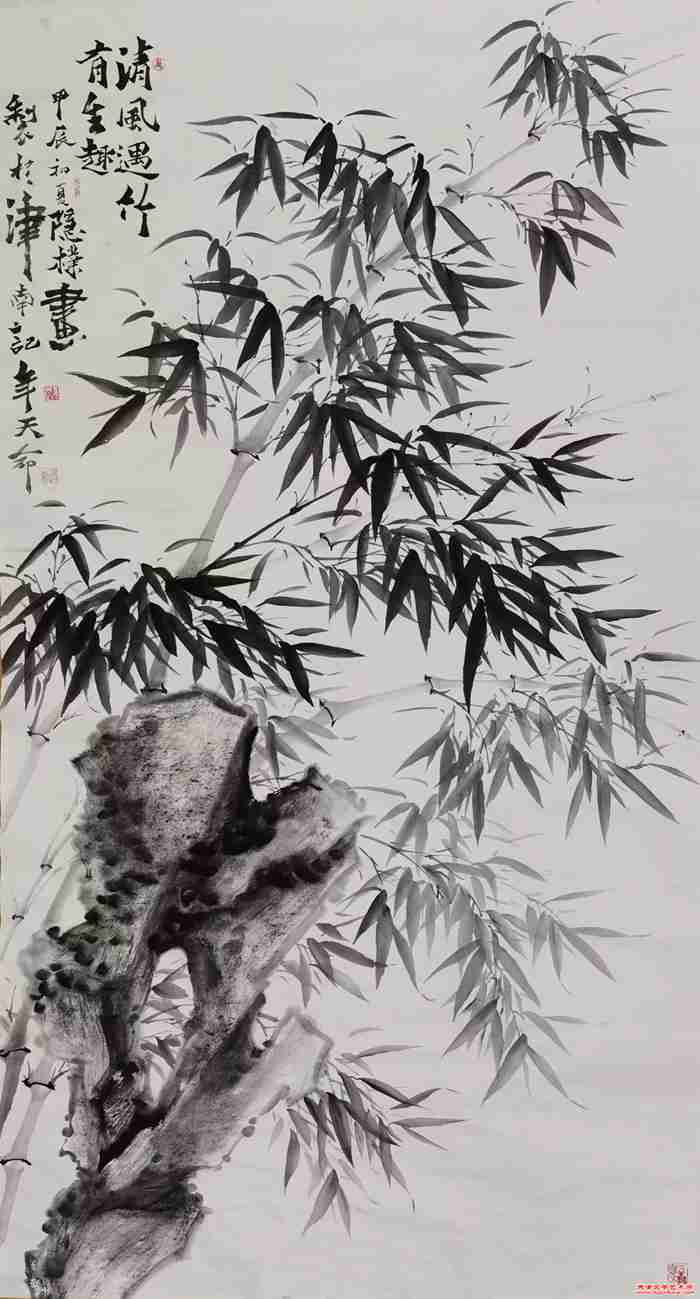 清風遇竹
有生趣
甲辰初夏隱樸畫
製於津南記年天命